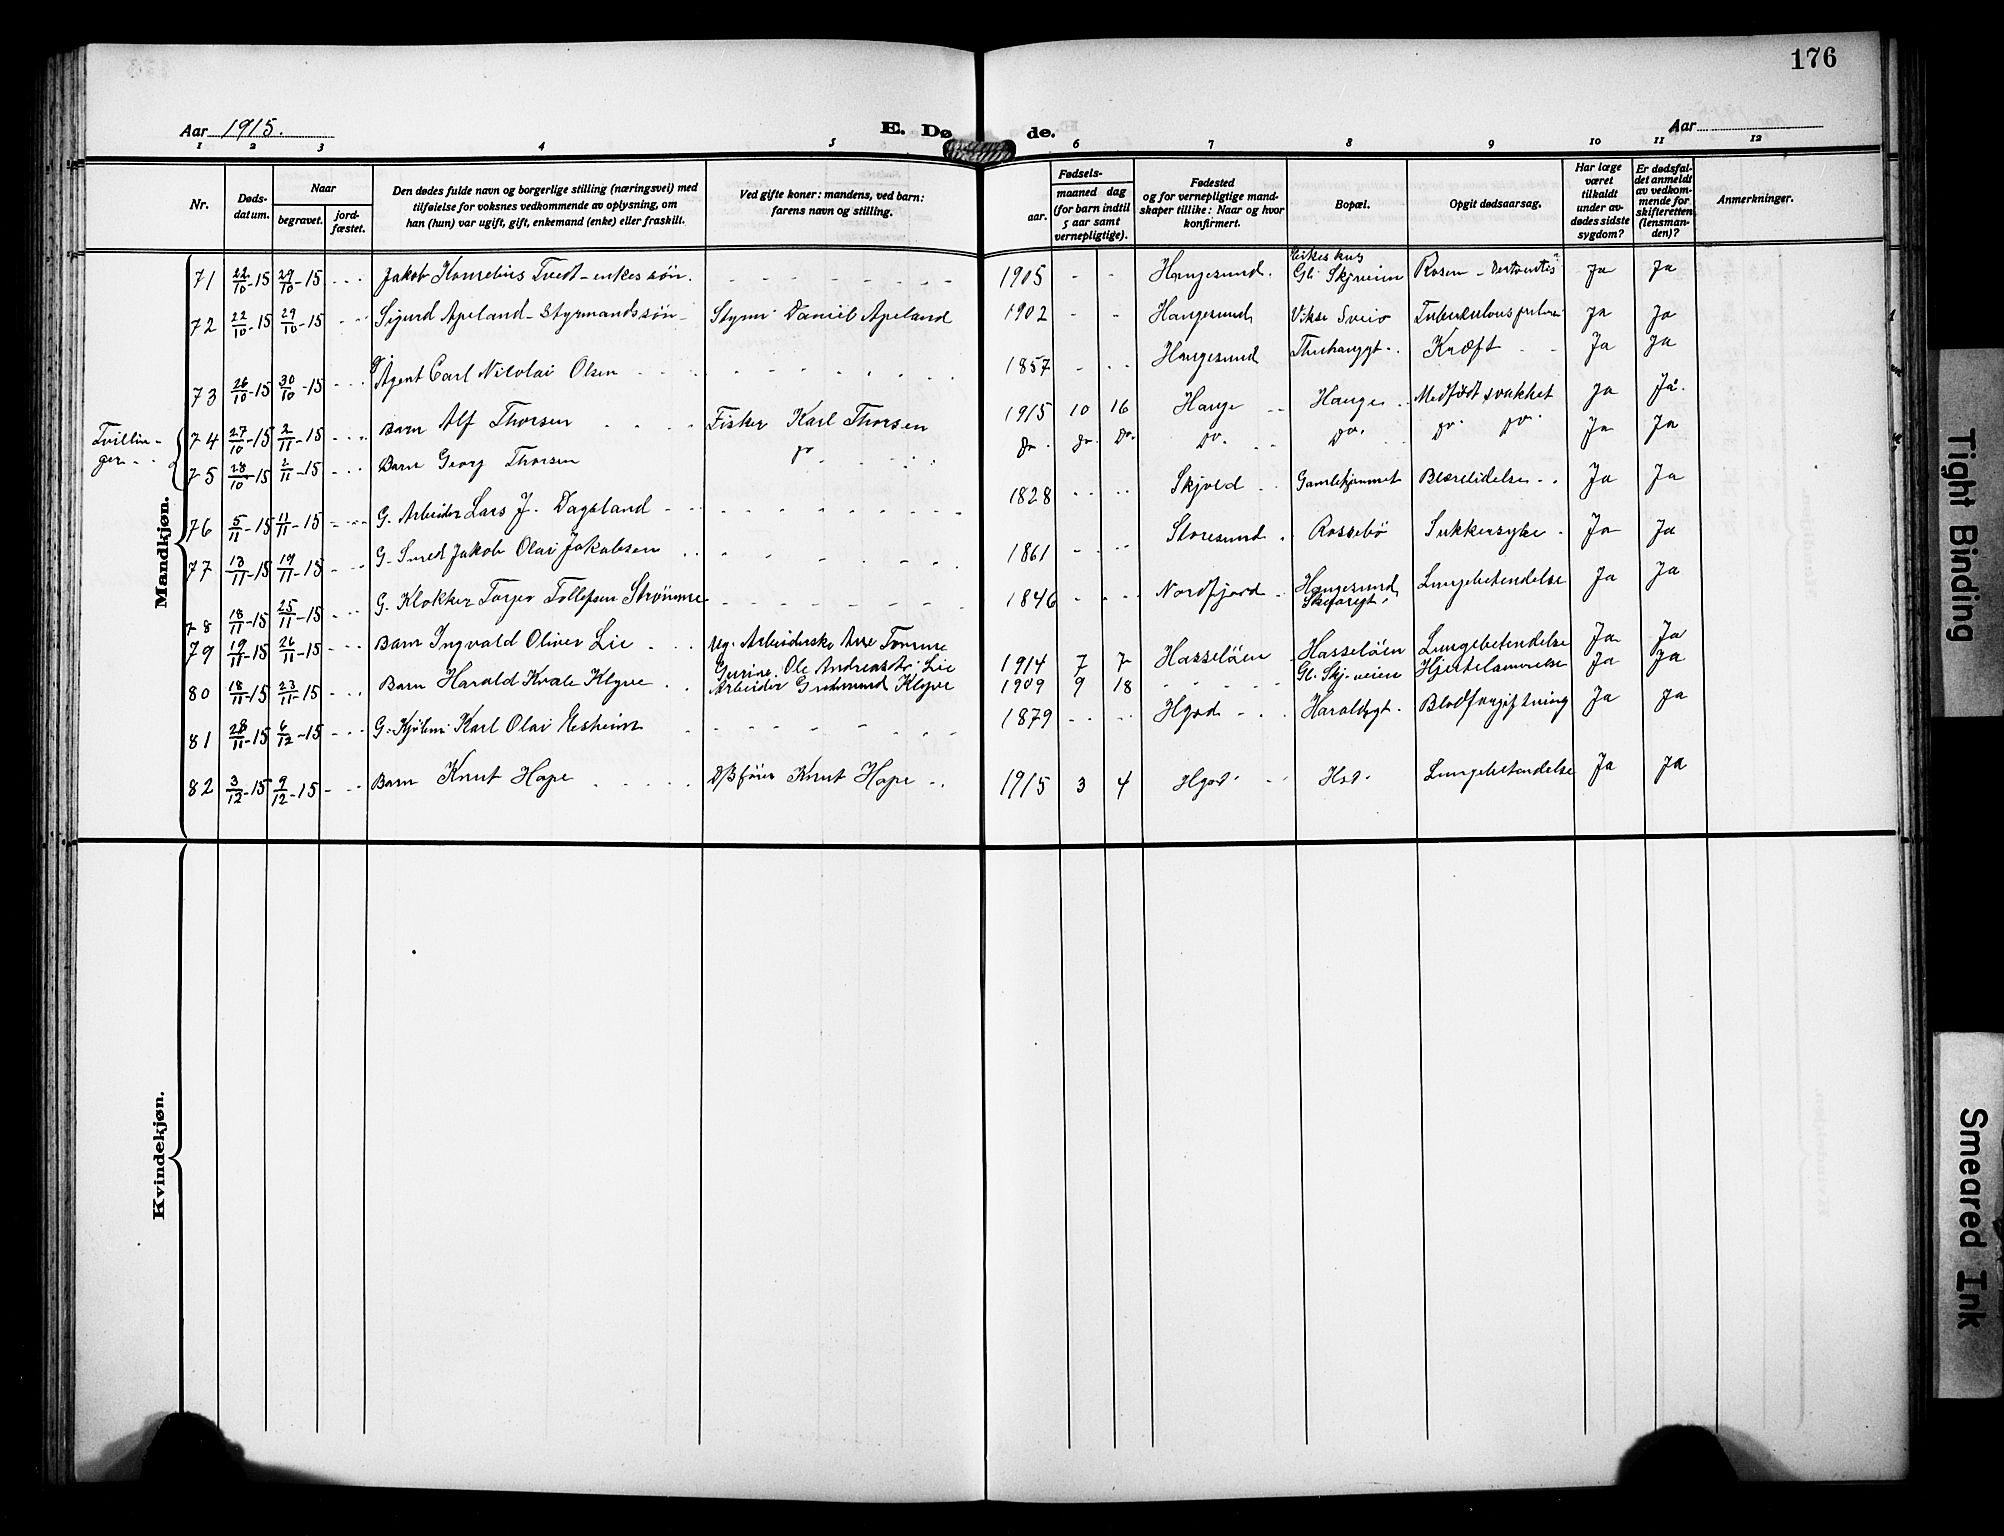 176
Aar 1915. E. Dø de. Aar
1 2 3 4 5 6 7 8 9 10 11 12
Nr.
Døds-
datum.
Naar
begravet.
jord-
fæstet.
Den dødes fulde navn og borgerlige stilling (næringsvei) med
tilføielse for voksnes vedkommende av oplysning, om
han (hun) var ugift, gift, enkemand (enke) eller fraskilt.
Ved gifte koner: mandens, ved barn:
farens navn og stilling.
Fødsels-
aar.
maaned dag
(for barn indtil
5 aar samt
vernepligtige).
Fødested
og for vernepligtige mand-
skaper tillike: Naar og hvor
konfirmert.
Bopæl.
Opgit dødsaarsag.
Har læge
været
tilkaldt
under av-
dødes sidste
sygdom?
Er dødsfal-
det anmeldt
av vedkom-
mende for
skifteretten
(lensman-
den)?
Anmerkninger.
Mandkjøn.
71 22/10-15 29/10-15 Jakob Kornelius Tvedt - enkes søn. 1905 - - Haugesund. Gl. Skjoldevn Rosen Ja Ja
72 22/10-15 29/10-15 Sigurd Apeland - Styrmandssøn - Styrm. Daniel Apeland 1902 - - Haugesund Vikse Sveio Ja Ja
73 26/10-15 30/10-15 g Agent Carl Nicolai Olsen 1857 Haugesund Kræft Ja Ja
Tvillin-
ger
74 27/10-15 2/11-15 Barn Alf Thorsen Fisker Karl Thorsen 1915 10 16 Hauge Hauge Medfødt svakhet Ja Ja.
75 28/10-15 2/11-15 Barn Georg Thorsen do do. do. do. do. do. do. do. Ja Ja
76 5/11-15 11/11-15 G. Arbeider Lars J. Dagsland 1828 Skjold Gamlehjemmet Blærelidelse Ja Ja
77 13/11-15 19/11-15 G. Smed Jakob Olai Jakobsen 1861 Storesund Rossebø Sukkersyke Ja Ja
78 18/11-15 25/11-15 G. Klokker Torger Tollefsen Strømme 1846 Nordfjord Haugesund Lungebetendelse Ja Ja
79 19/11-15 26/11-15 Barn Ingvald Oliver Lie Ug. Arbeiderske Ane Tomine
Gurine Ole Andreasdtr. Lie 1914 7 7 Hasseløen Hasseløen Lungebetendelse Ja Ja
80 18/11-15 23/11-15 Barn Harald Kvale Klyve Arbeider Gudmund Klyve 1909 9 18 Gl. Skj-veien Hjertelammelse Ja Ja
81 28/11-15 6/12-15 G. Karl Olai Eesheim 1879 Hgsd Haraldsgt. Blodforgiftning Ja Ja
82 3/12-15 9/12-15 Barn Knut Hope D/B fører Knut Hope 1915 3 4 Hgsd Hsd. Lungebetendelse Ja Ja
Kvindekjøn.
Tight Binding
Smeared Ink